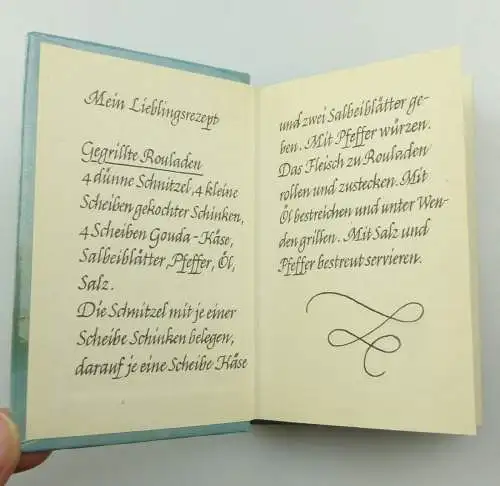 Mein Lieblingsrezept
Gegrillte Rouladen
4 dünne Schnitzel, 4 kleine
Scheiben gekochter Schinken,
4 Scheiben Gouda-Käse,
Salbeiblätter, Pfeffer, Öl,
Salz.
Die Schnitzel mit je einer
Scheibe Schinken belegen,
darauf je eine Scheibe Käse
und zwei Salbeiblätter ge-
ben. Mit Pfeffer würzen.
Das Fleisch zu Rouladen
rollen und zustecken. Mit
Öl bestreichen und unter Wen-
den grillen. Mit Salz und
Pfeffer bestreut servieren.